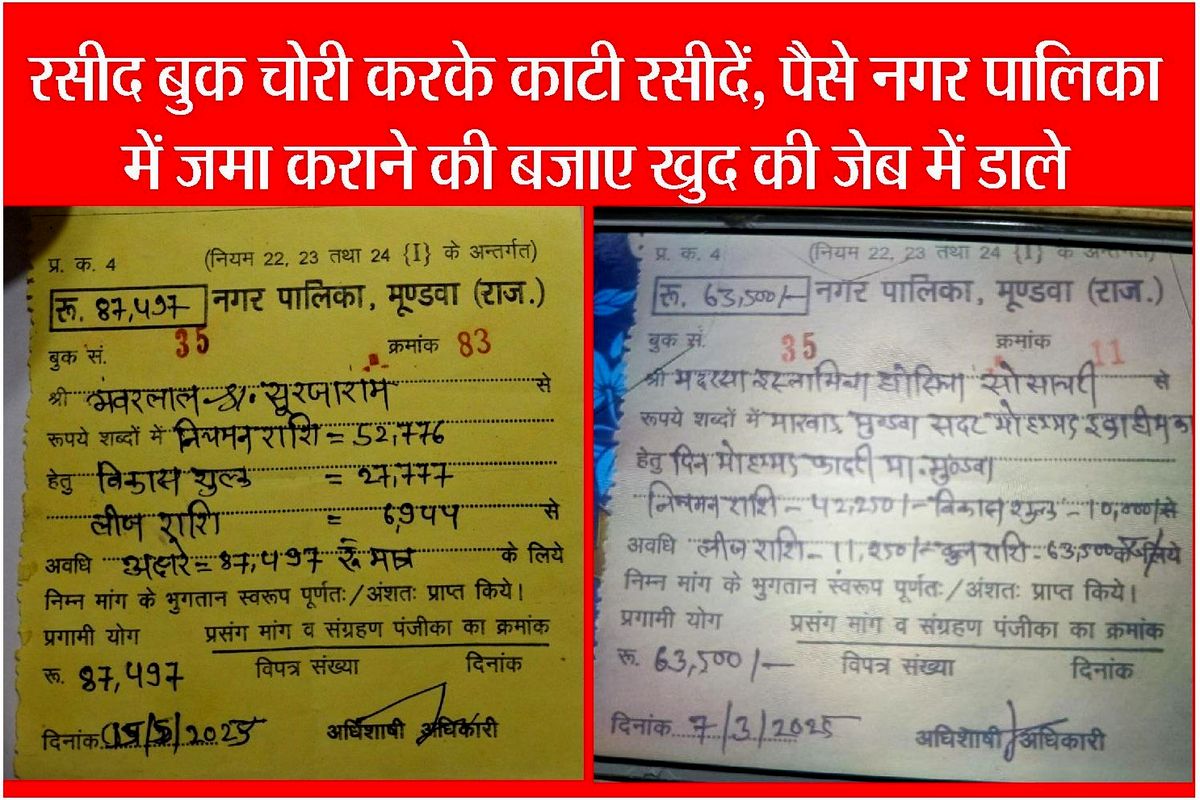 रसीद बुक चोरी करके काटी रसीदें, पैसे नगर पालिका
में जमा कराने की बजाए खुद की जेब में डाले
प्र. क. 4 (नियम 22, 23 तथा 24 {I} के अन्तर्गत)
रू. 87,497 नगर पालिका, मूण्डवा (राज.)
बुक सं. 35 क्रमांक 83
श्री भंवरलाल S/. सूरजाराम से
रूपये शब्दों में नियमन राशि = 52,776
हेतु विकास शुल्क = 27,777
लीज राशि = 6,944 से
अवधि अक्षरे = 87,497 रू मात्र के लिये
निम्न मांग के भुगतान स्वरूप पूर्णतः/अंशतः प्राप्त किये।
प्रगामी योग प्रसंग मांग व संग्रहण पंजीका का क्रमांक
रू. 87,497 विपत्र संख्या दिनांक
दिनांक 19/5/2025 अधिशाषी अधिकारी
प्र. क. 4 (नियम 22, 23 तथा 24 {I} के अन्तर्गत)
रू. 63,500/- नगर पालिका, मूण्डवा (राज.)
बुक सं. 35 क्रमांक 11
श्री मदरसा इस्लामिया सोसायटी से
रूपये शब्दों में मारवाड मुण्डवा सदर मोहम्मद इब्राहीम
हेतु दिन मोहम्मद कादरी मुण्डवा
नियमन राशि - 42,250/- विकास शुल्क - 10,000/ से
अवधि लीज राशि - 11,250/- कुल राशि - 63,500 के लिये
निम्न मांग के भुगतान स्वरूप पूर्णतः/अंशतः प्राप्त किये।
प्रगामी योग प्रसंग मांग व संग्रहण पंजीका का क्रमांक
रू. 63,500/- विपत्र संख्या दिनांक
दिनांक 7/3/2025 अधिशाषी अधिकारी